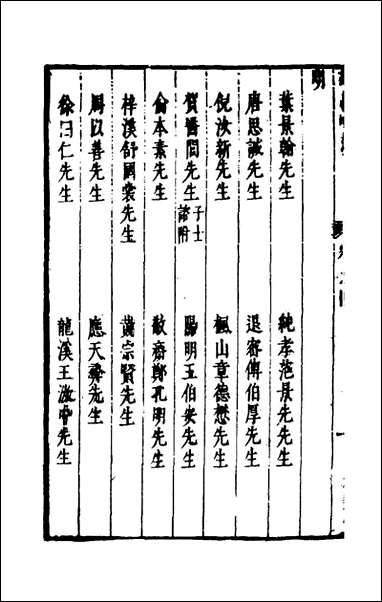 明
葉景翰先生 純孝范景先先生
唐思誠先生 退齋傅伯厚先生
倪汝新先生 楓山章德懋先生
賀醫閭先生 子士諮附 陽明王伯安先生
本素先生 鄭孔明先生
梓溪舒國裳先生 黃宗賢先生
周以善先生 應天彝先生
徐曰仁先生 龍溪王汝中先生